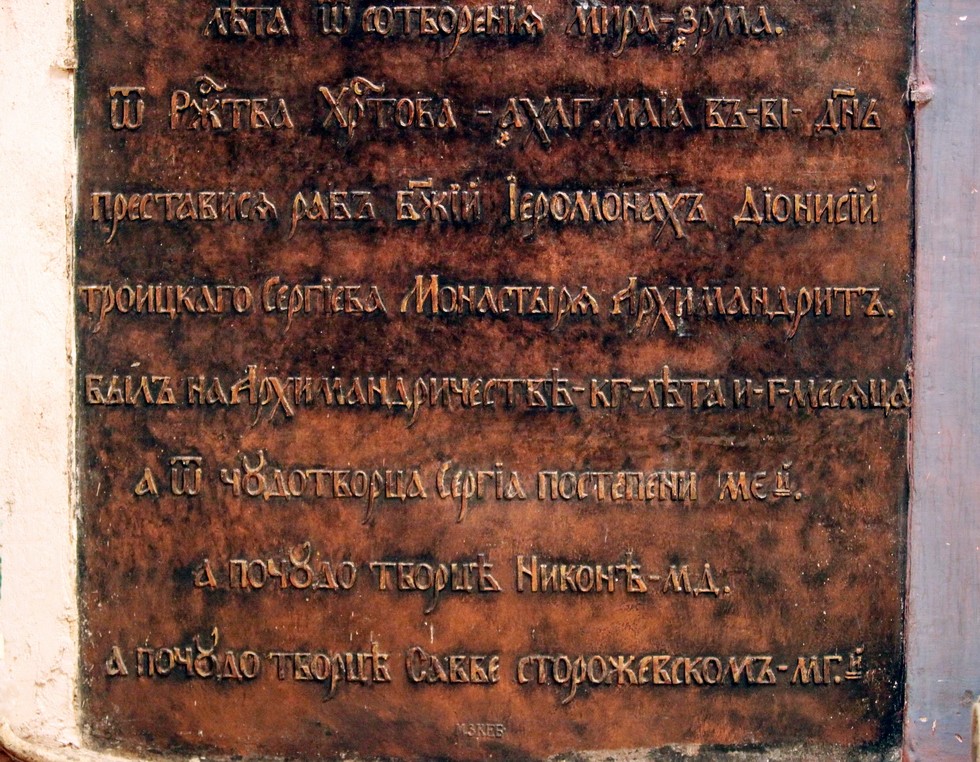 лѣта ѿ сотворенїя мира-зрма.
ѿ Рж҃тва Хр҃това - ахлг. маїа въ-ві- дн҃ь
преставися рабъ Бж҃їй Їеромонахъ Дїонисїй
троицкаго Сергїева Монастыря Архимандритъ.
былъ на Архимандричествѣ-кг-лѣта и-г-месяца
а ѿ чꙋдотворца Сергїа по степени меⷤ҇й.
а по чꙋдо творцѣ Никонѣ-мд.
а по чꙋдо творцѣ Савве сторожевскомъ-мг.й